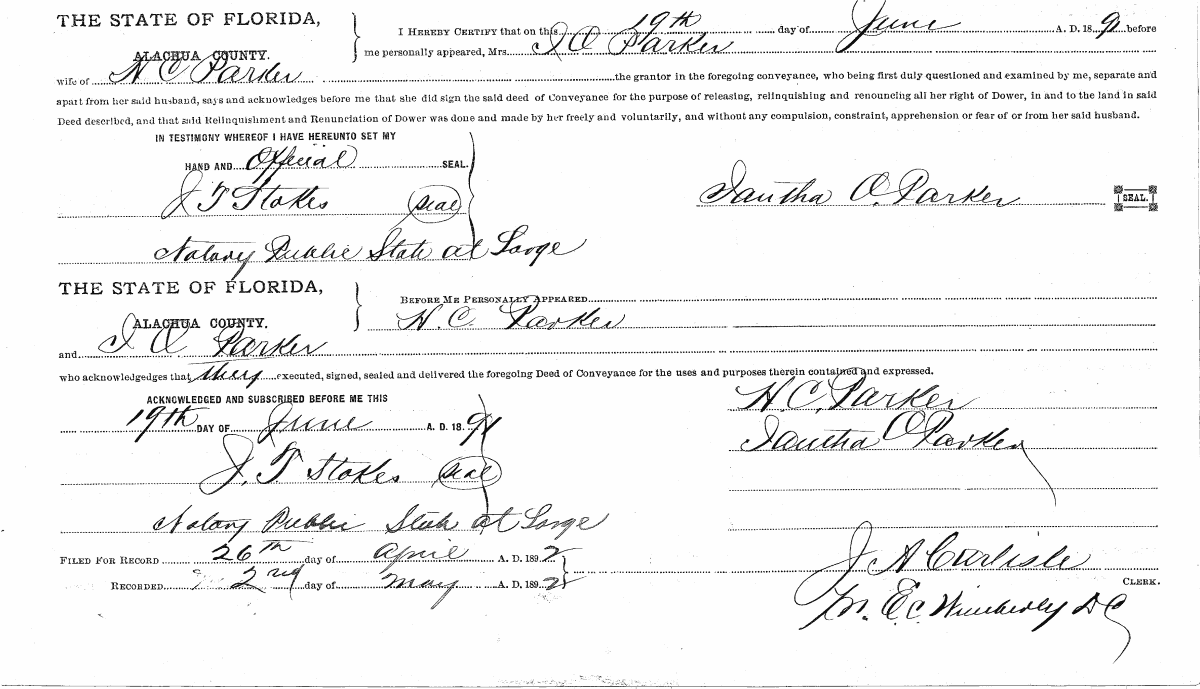 THE STATE OF FLORIDA,
ALACHUA COUNTY.
I HEREBY CERTIFY that on this 19th day of June A. D. 1891 before
me personally appeared, Mrs. I O Parker
wife of H C Parker the grantor in the foregoing conveyance, who being first duly questioned and examined by me, separate and
apart from her said husband, says and acknowledges before me that she did sign the said deed of Conveyance for the purpose of releasing, relinquishing and renouncing all her right of Dower, in and to the land in said
Deed described, and that said Relinquishment and Renunciation of Dower was done and made by her freely and voluntarily, and without any compulsion, constraint, apprehension or fear of or from her said husband.
IN TESTIMONY WHEREOF I HAVE HEREUNTO SET MY
HAND AND Official SEAL.
J T Stokes seal
Iantha O. Parker SEAL.
Notary Public State at Large
THE STATE OF FLORIDA,
ALACHUA COUNTY.
BEFORE ME PERSONALLY APPEARED
H. C. Parker
and I O Parker
who acknowledgedges that they executed, signed, sealed and delivered the foregoing Deed of Conveyance for the uses and purposes therein contained and expressed.
ACKNOWLEDGED AND SUBSCRIBED BEFORE ME THIS
19th DAY OF June A. D. 1891
H. C. Parker
Iantha O Parker
J. T Stokes seal
Notary Public State at Large
FILED FOR RECORD 26th day of April A. D. 1892
RECORDED 2nd day of May A. D. 1892
J A Carlisle
CLERK.
E. C. Wimberly D C